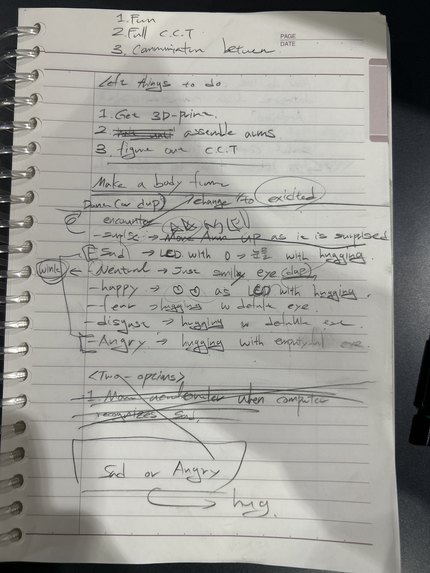 1. Fun
2 Full C.C.T
3. Communication between
PAGE
DATE
Left things to do
1. Get 3D-print.
2 assemble arms
3 figure out C.C.T
Make a body frame
Dance (or clap) change to exicited
encounter
- surise → Move Arm up as it is surpised
Sad → LED with 0 → 눈물 with hugging.
wink ← Neutral → Just smiley eye (clap)
- happy → as LED with hugging.
- fear → hugging w defulte eye.
- disguse → hugging w defulte eye.
Angry → hugging with eye
<Two-options>
- 1. Move when computer
recognizes Sad.
Sad or Angry
hug.